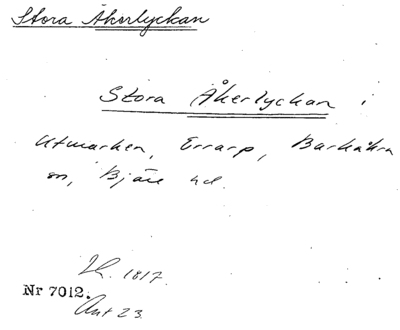 Stora Åkerlyckan
Stora Åkerlyckan i
Utmarken, Errarp, Barkåkra
sn, Bjäre hd.
Lh. 1817.
Nr 7012.
Akt 23.